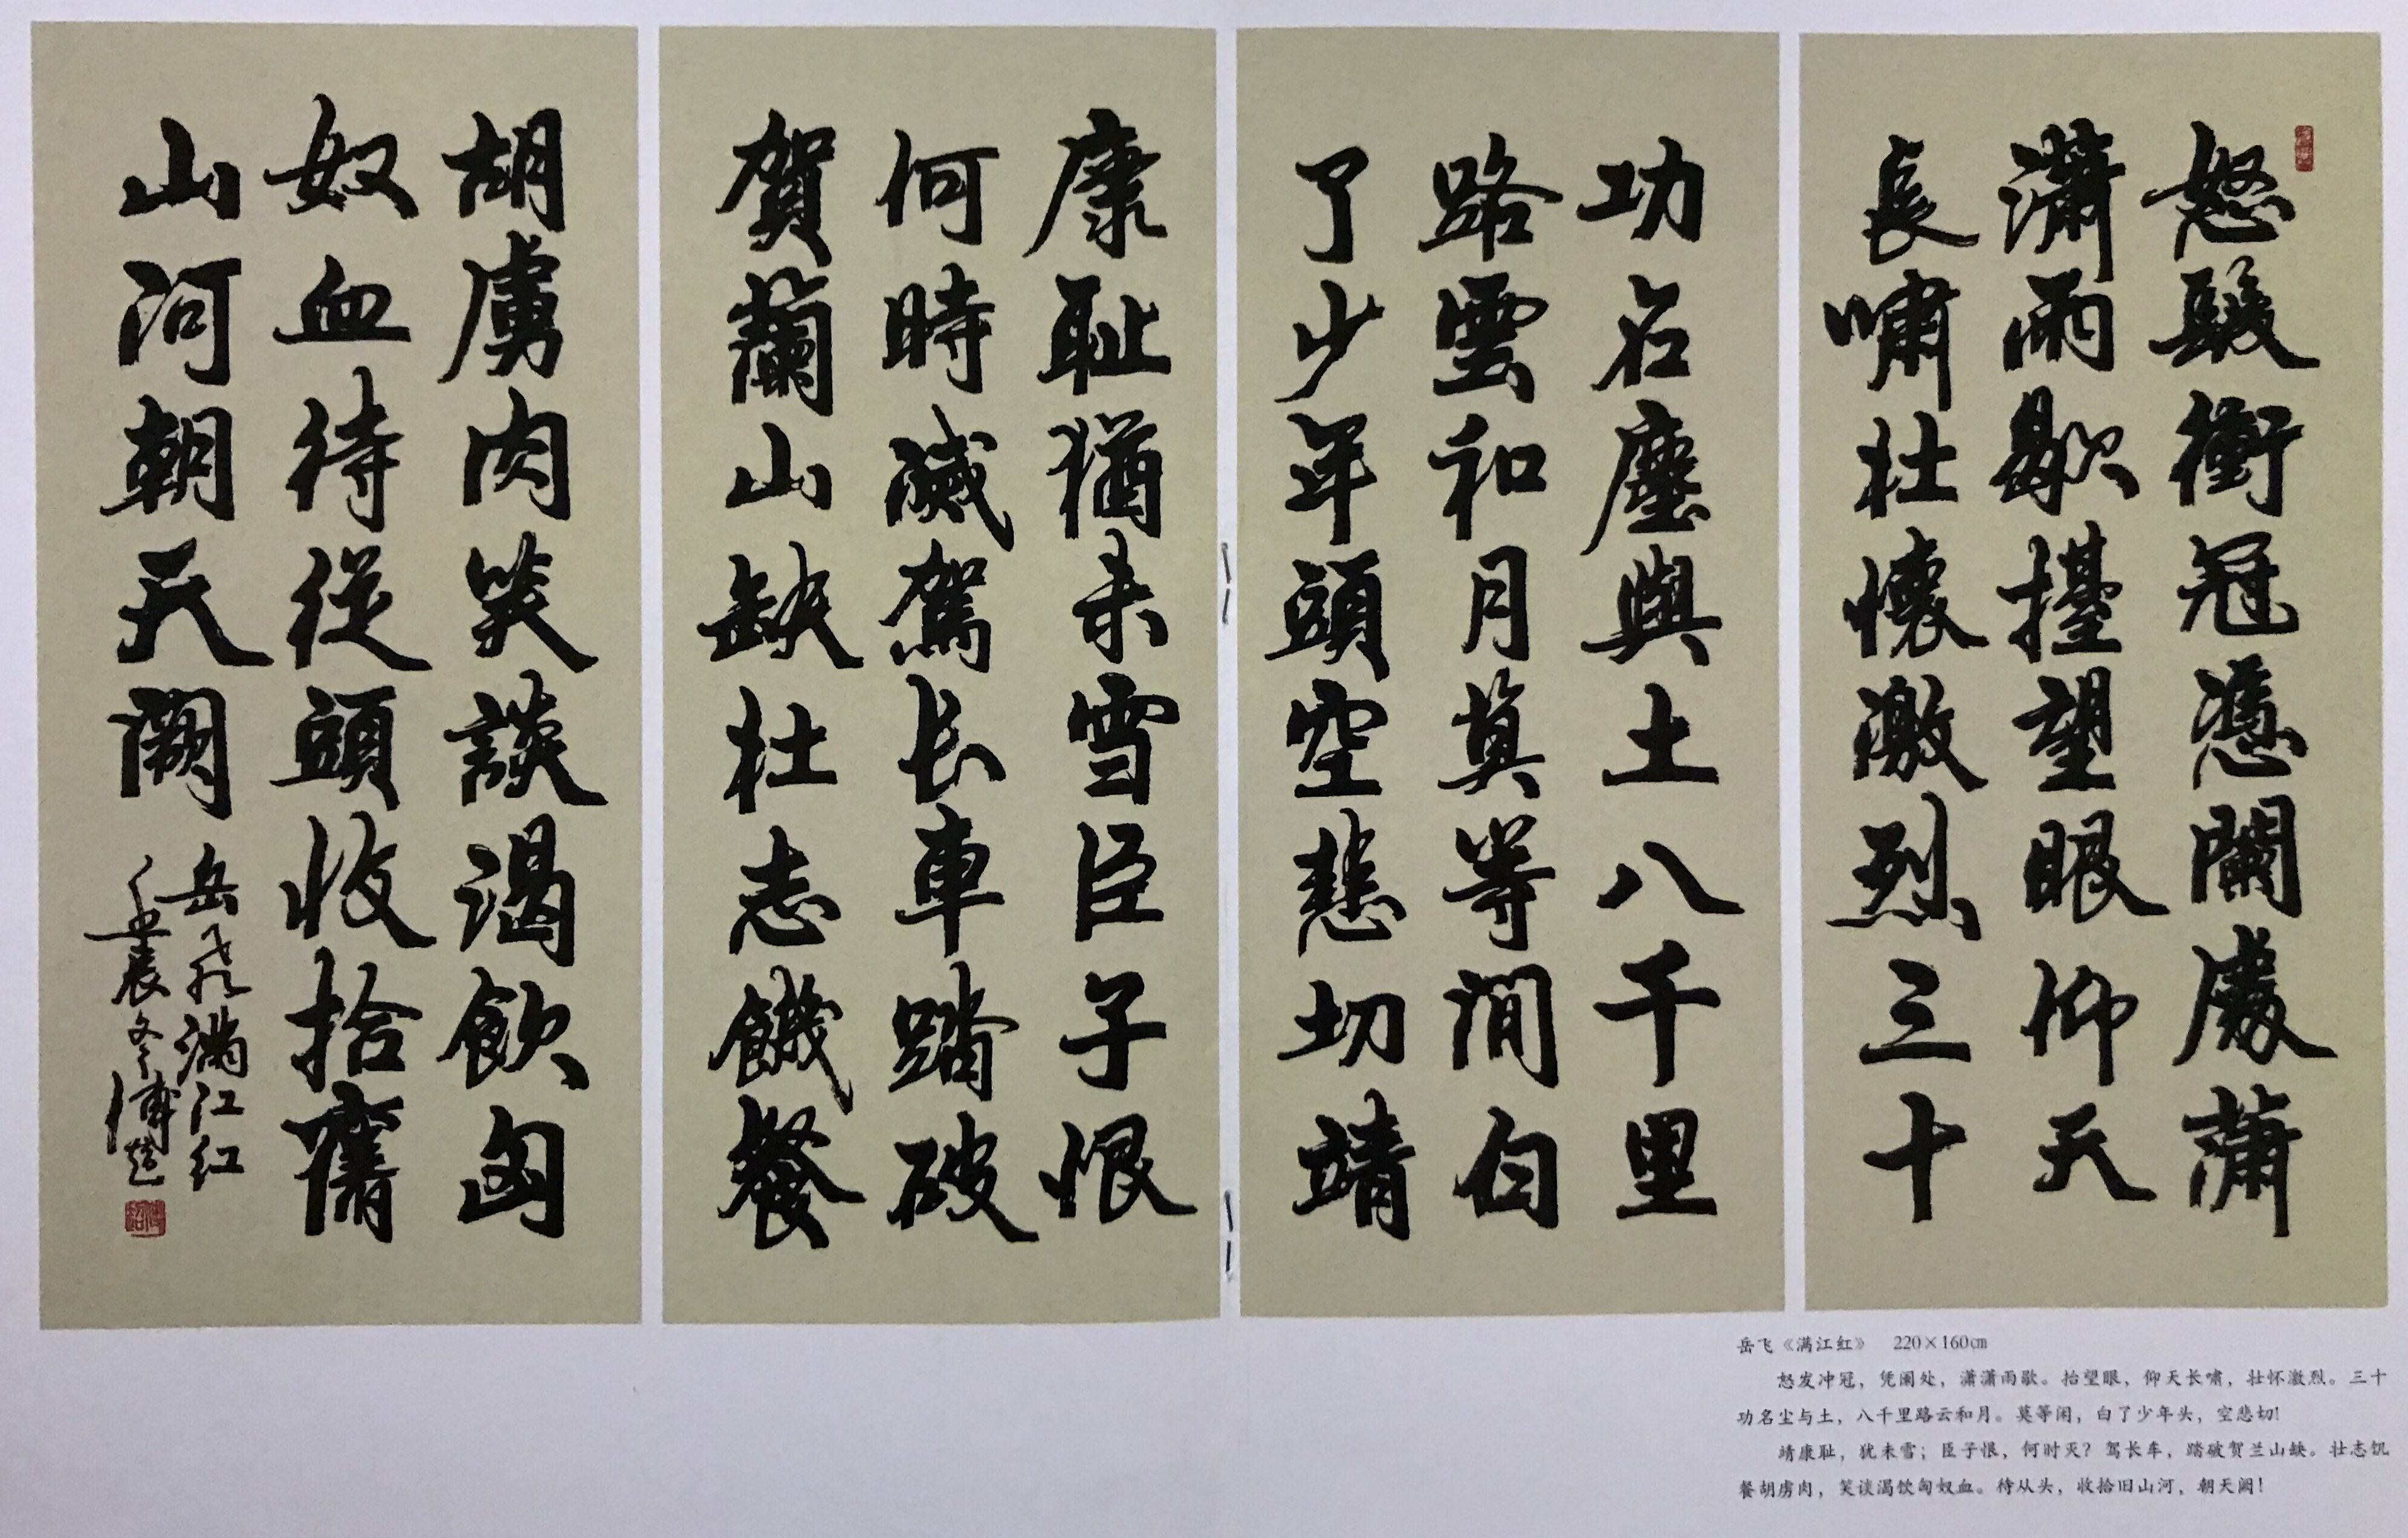 怒髮衝冠憑闌處蕭
瀟雨歇擡望眼仰天
長嘯壯懷激烈三十
功名塵與土八千里
路雲和月莫等閒白
了少年頭空悲切靖
康耻猶未雪臣子恨
何時滅駕长車踏破
賀蘭山缺壯志饑餐
胡虜肉笑談渴飲匈
奴血待從頭收拾舊
山河朝天闕
岳飛满江红
壬辰冬
岳飞《满江红》 220×160㎝
怒发冲冠，凭阑处，潇潇雨歇。抬望眼，仰天长啸，壮怀激烈。三十
功名尘与土，八千里路云和月。莫等闲，白了少年头，空悲切！
靖康耻，犹未雪；臣子恨，何时灭？驾长车，踏破贺兰山缺。壮志饥
餐胡虏肉，笑谈渴饮匈奴血。待从头，收拾旧山河，朝天阙！